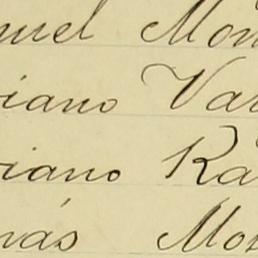 nuel Mon
iano Var
iano Ra
nás Mo